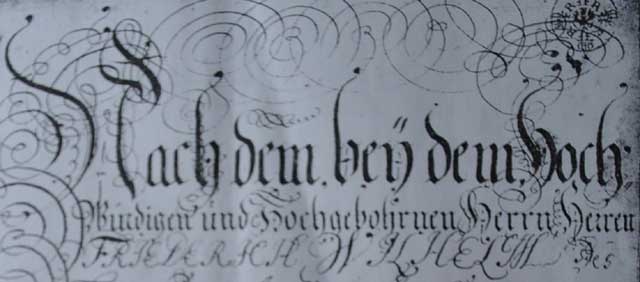 Nachdem bey dem Hoch-
Würdigen und Hochgebohrnen Herrn Herren
FRIEDERICH WILHELM des